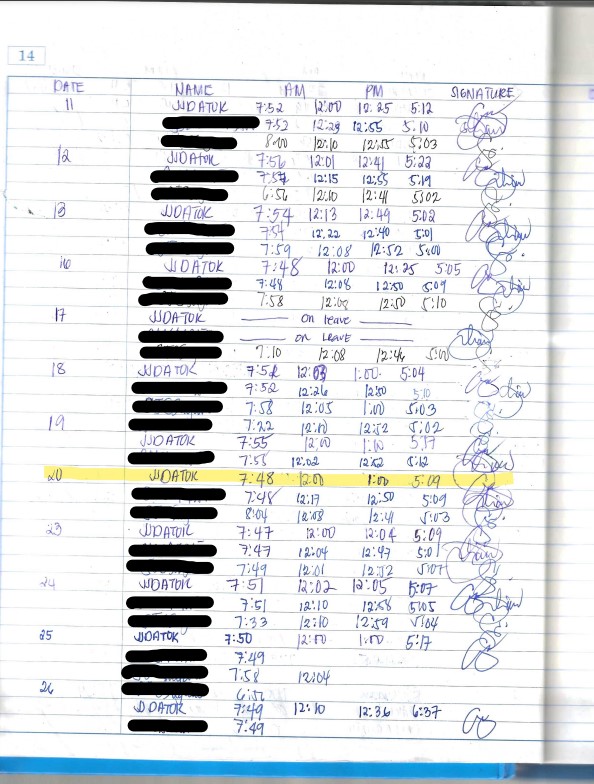 14
DATE NAME AM PM SIGNATURE
11 JJDATOK 7:52 12:00 12:25 5:12
7:52 12:29 12:55 5:10
8:00 12:10 12:55 5:03
12 JJDATOK 7:56 12:01 12:41 5:22
7:57 12:15 12:55 5:19
6:56 12:10 12:41 5:02
13 JJDATOK 7:54 12:13 12:49 5:02
7:54 12:22 12:40 5:01
7:59 12:08 12:52 5:00
16 JJDATOK 7:48 12:00 12:25 5:05
7:48 12:08 12:50 5:09
7:58 12:50 5:10
17 JJDATOK on leave
on leave
7:10 12:08 5:00
18 JJDATOK 7:52 12:03 1:00 5:04
7:52 12:26 12:50 5:10
7:58 12:05 1:00 5:03
19 7:22 12:10 12:52 5:02
JJDATOK 7:55 12:00 1:00 5:17
7:55 12:02 12:52 5:12
20 JJDATOK 7:48 12:00 1:00 5:09
7:48 12:17 12:50 5:09
8:04 12:08 12:41 5:03
23 JJDATOK 7:47 12:00 12:04 5:09
7:47 12:04 12:47 5:01
7:49 12:01 12:52 5:07
24 JJDATOK 7:51 12:02 12:05 5:07
7:51 12:10 12:58 5:05
7:33 12:10 12:59 5:04
25 JJDATOK 7:50 12:00 1:00 5:17
7:49
7:58 12:04
26 6:52
JJDATOK 7:49 12:10 12:36 6:37
7:49